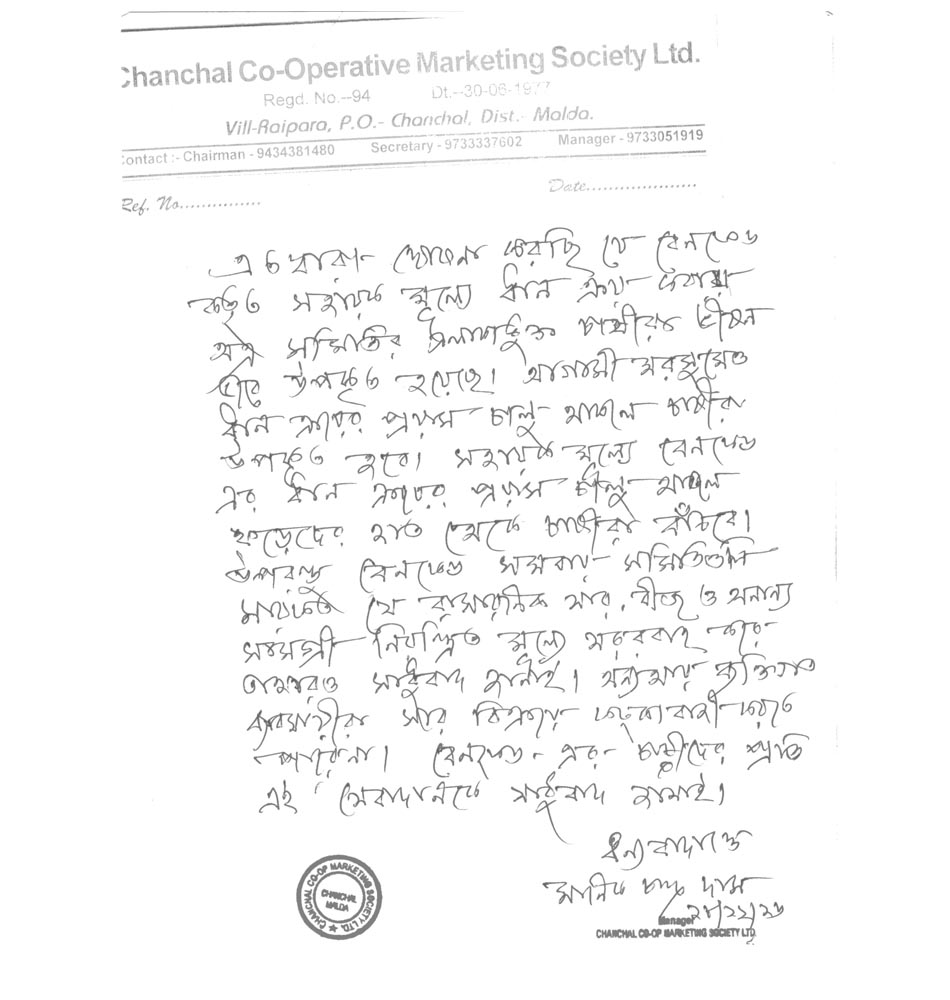 Chanchal Co-Operative Marketing Society Ltd.
Regd. No.--94 Dt.--30-06-1977
Vill-Raipara, P.O.- Chanchal, Dist.- Malda.
Contact :- Chairman - 9434381480 Secretary - 9733337602 Manager - 9733051919
Ref. No............... Date.....................
এতদ্বারা ঘোষনা করছি যে বেনফেড
কর্তৃক সহায়ক মূল্যে ধান ক্রয় করায়
অত্র সমিতির এলাকাভুক্ত চাষীরা ভীষন
ভাবে উপকৃত হয়েছে। আগামী মরসুমেও
ধান ক্রয়ের প্রয়াস চালু থাকলে চাষীরা
উপকৃত হবে। সহায়ক মূল্যে বেনফেড
এর ধান ক্রয়ের প্রয়াস চালু থাকলে
ফড়েদের হাত থেকে চাষীরা বাঁচবে।
উপরন্তু বেনফেড সমবায় সমিতিগুলি
মারফত যে রাসায়নিক সার, বীজ ও অনান্য
সামগ্রী নিয়ন্ত্রিত মূল্যে সরবরাহ করে
সাধুবাদ জানাই। অন্যথায় ব্যক্তিগত
ব্যবসায়ীরা সার বিক্রয়ে করতে
পারেনা। বেনফেড এর চাষীদের প্রতি
এই সাধুবাদ জানাই।
ধন্যবাদান্তে
মানিক চন্দ্র দাস
Manager
CHANCHAL CO-OP MARKETING SOCIETY LTD.
CHANCHAL CO-OP MARKETING SOCIETY LTD.
CHANCHAL
MALDA